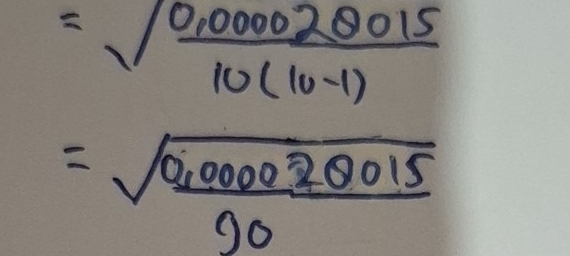 = √0,000020015
10(10-1)
= √0,000020015
90